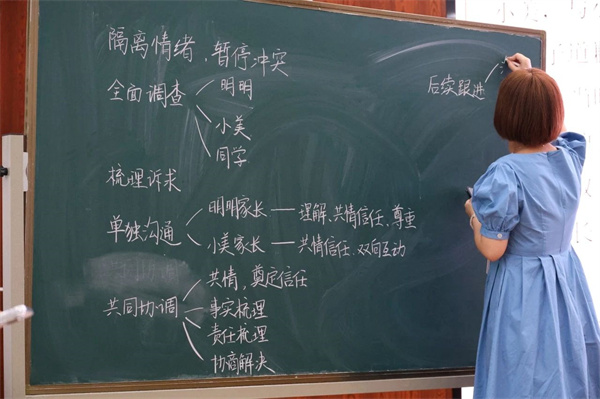 隔离情绪、暂停冲突
全面调查
明明
小美
同学
梳理诉求
单独沟通
明明家长——理解、共情信任、尊重
小美家长——共情信任、双向互动
共同协调
共情，奠定信任
事实梳理
责任梳理
协商解决
后续跟进